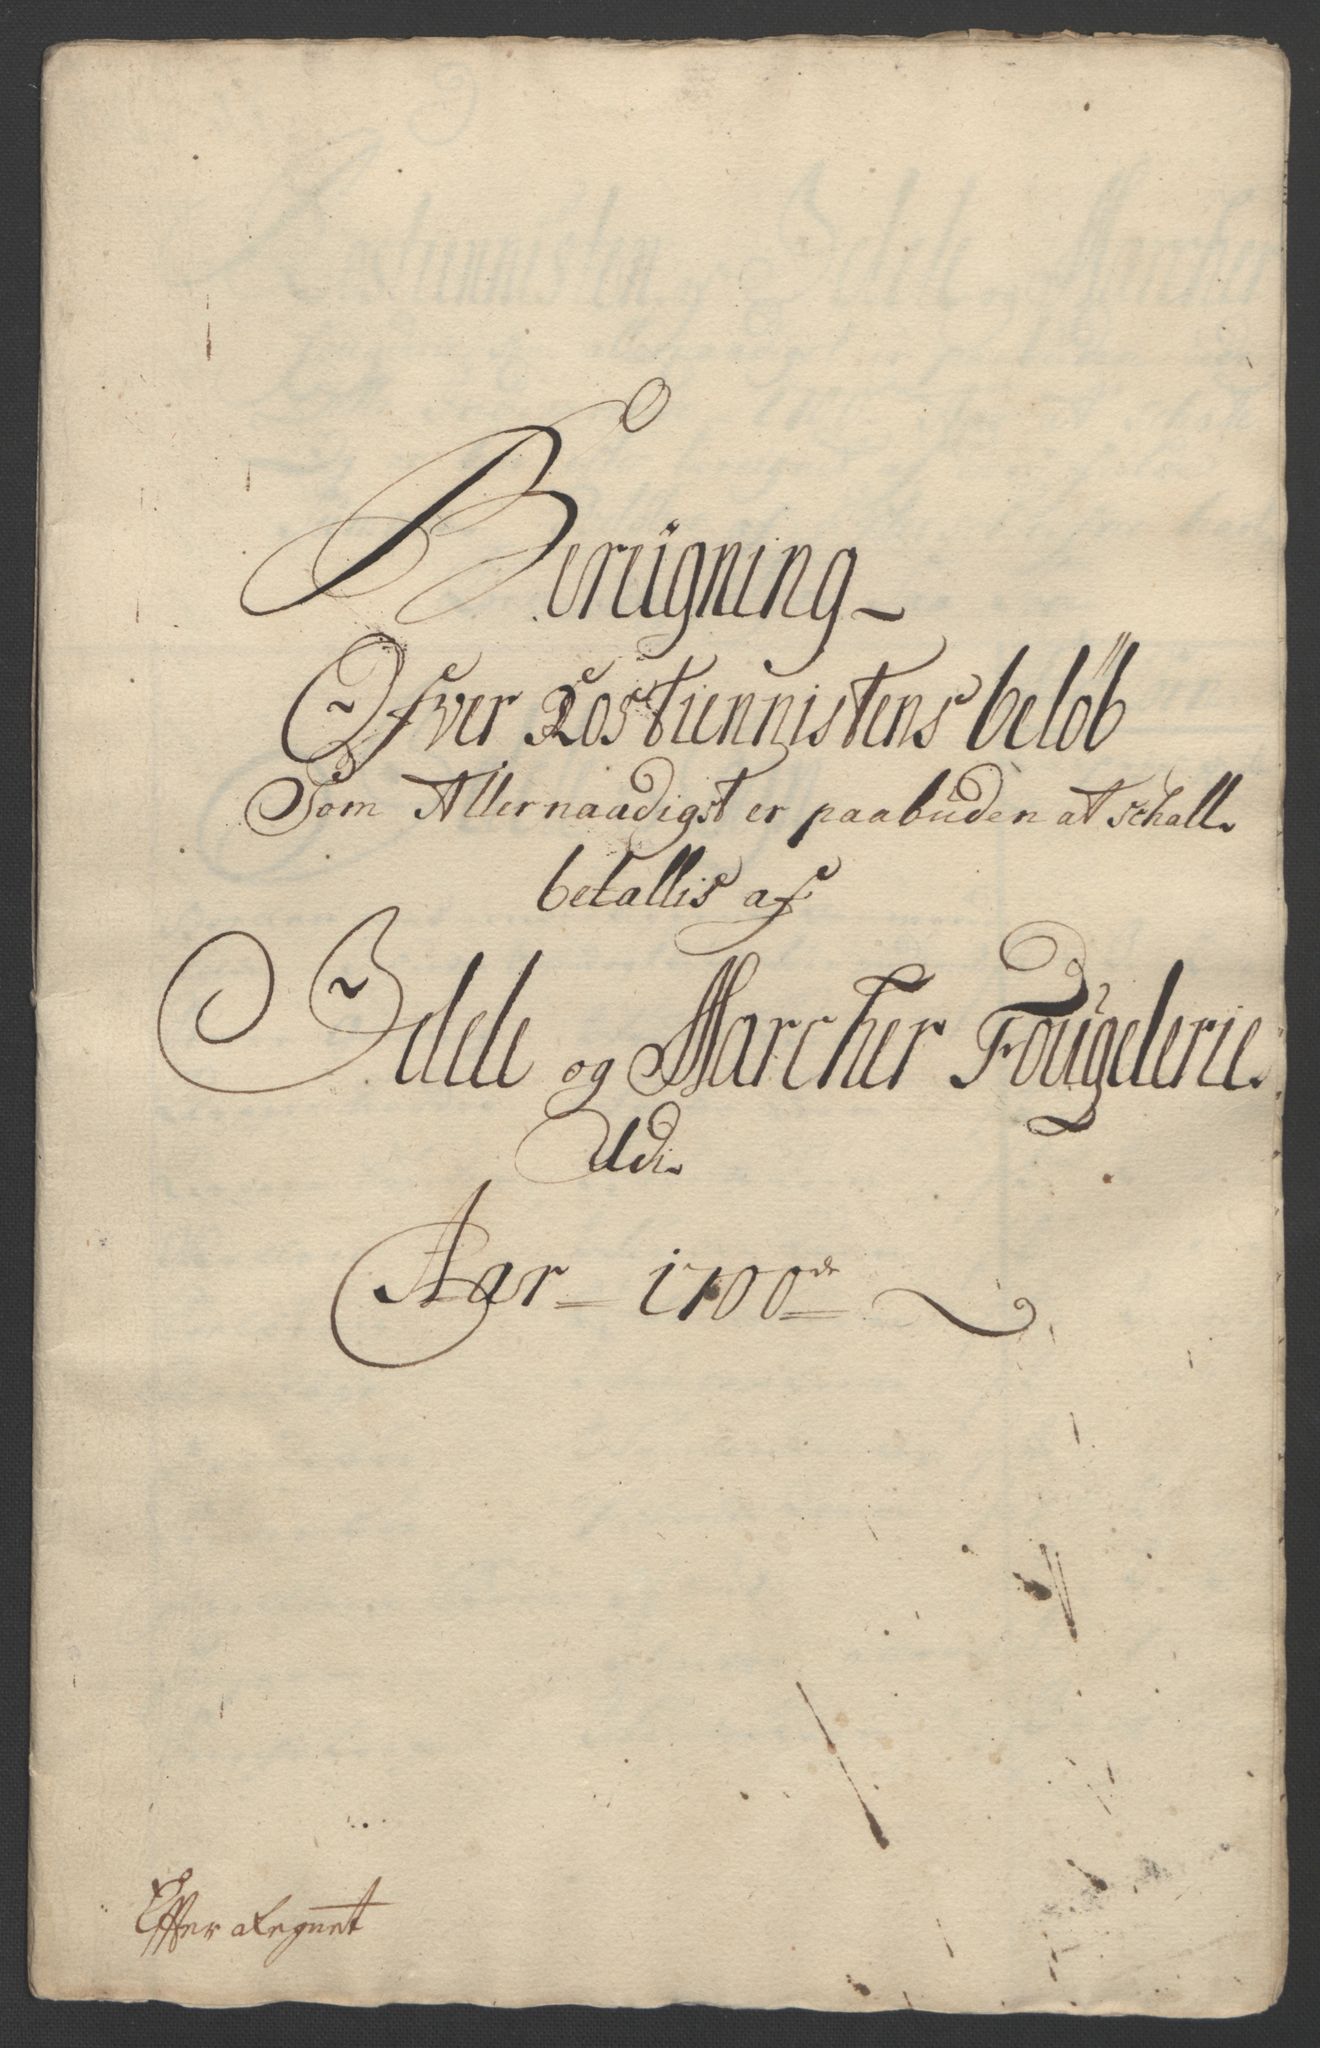 Bereigning
Ofver Rostiennistens beløb
Som Allernaadigst er paabuden at schall
betallis af
Idde og Marcher Fougderie
Udi
Aar 1700de
Effter Regnet